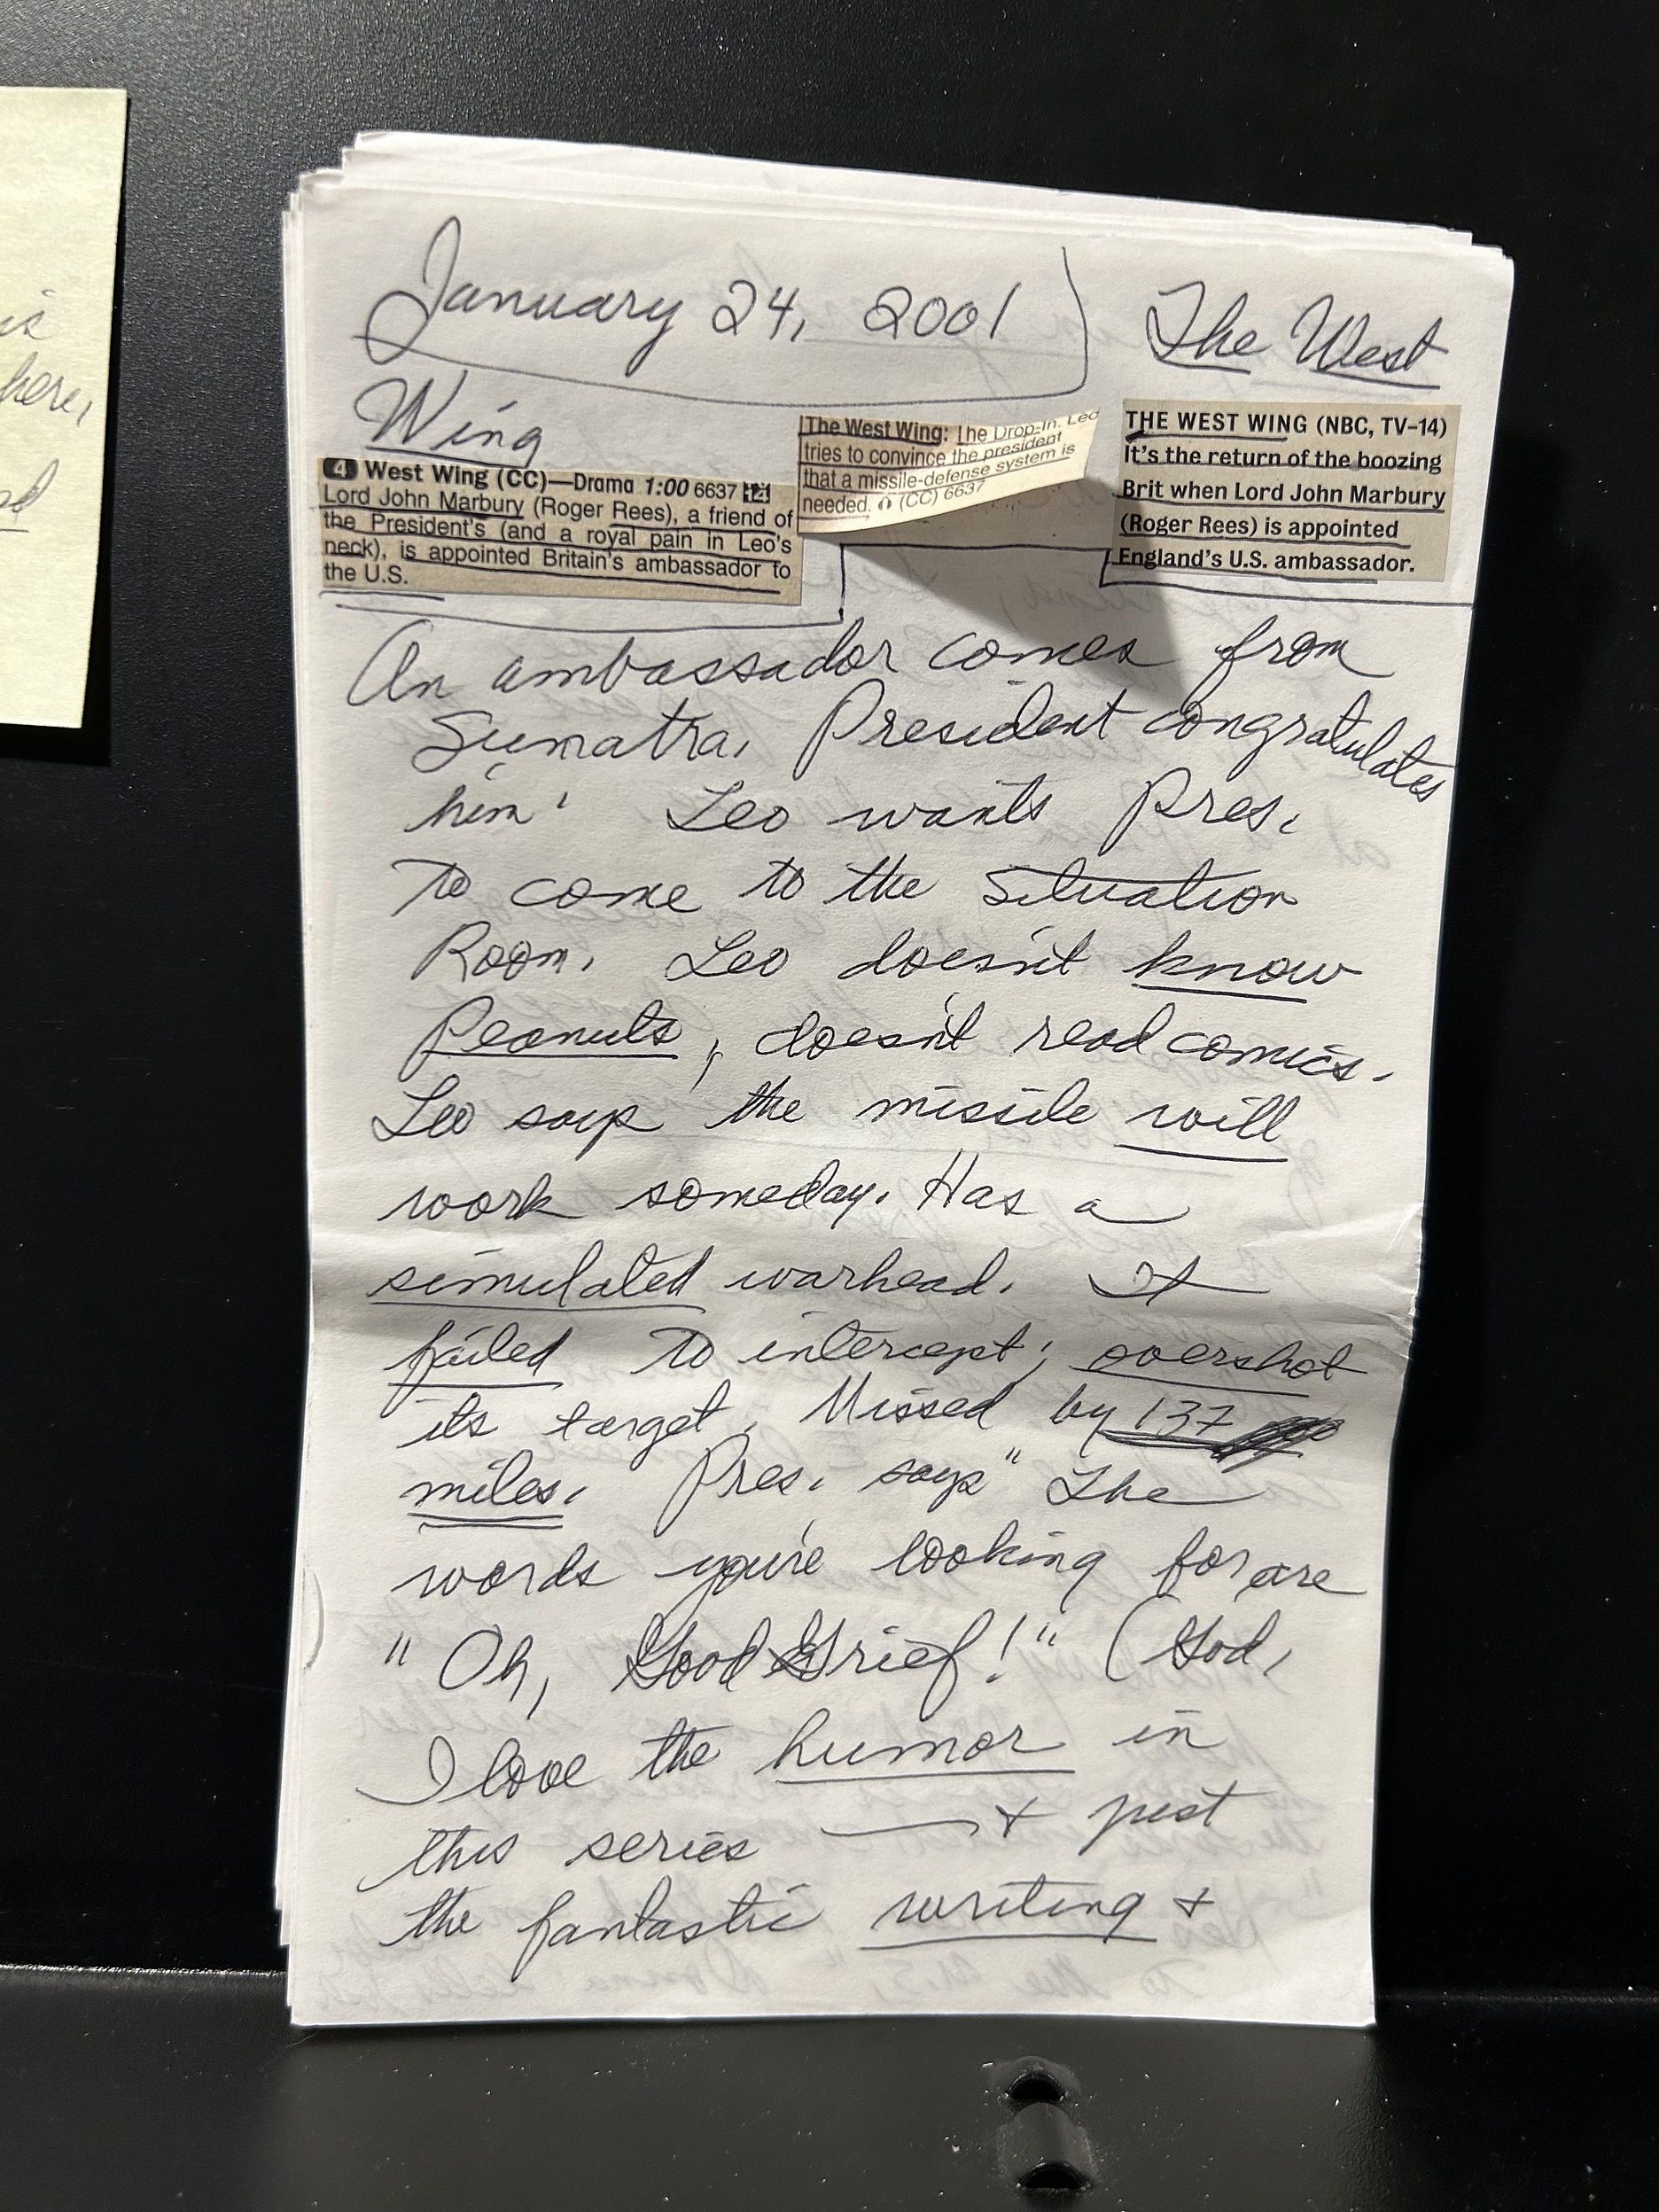 is
here,
January 24, 2001 The West
Wing
4 West Wing (CC)—Drama 1:00 6637
Lord John Marbury (Roger Rees), a friend of
the President's (and a royal pain in Leo's
neck), is appointed Britain's ambassador to
the U.S.
The West Wing: The Drop-In. Leo
tries to convince the president
that a missile-defense system is
needed. (CC) 6637
THE WEST WING (NBC, TV-14)
It's the return of the boozing
Brit when Lord John Marbury
(Roger Rees) is appointed
England's U.S. ambassador.
An ambassador comes from
Sumatra. President congratulates
him! Leo wants Pres.
to come to the Situation
Room. Leo doesn't know
Peanuts, doesn't read comics.
Leo says the missile will
work someday. Has a
simulated warhead. It
failed to intercept; overshot
its target. Missed by 137
miles. Pres. says "The
words you're looking for are
"Oh, Good Grief!" (God,
I love the humor in
this series — + just
the fantastic writing +